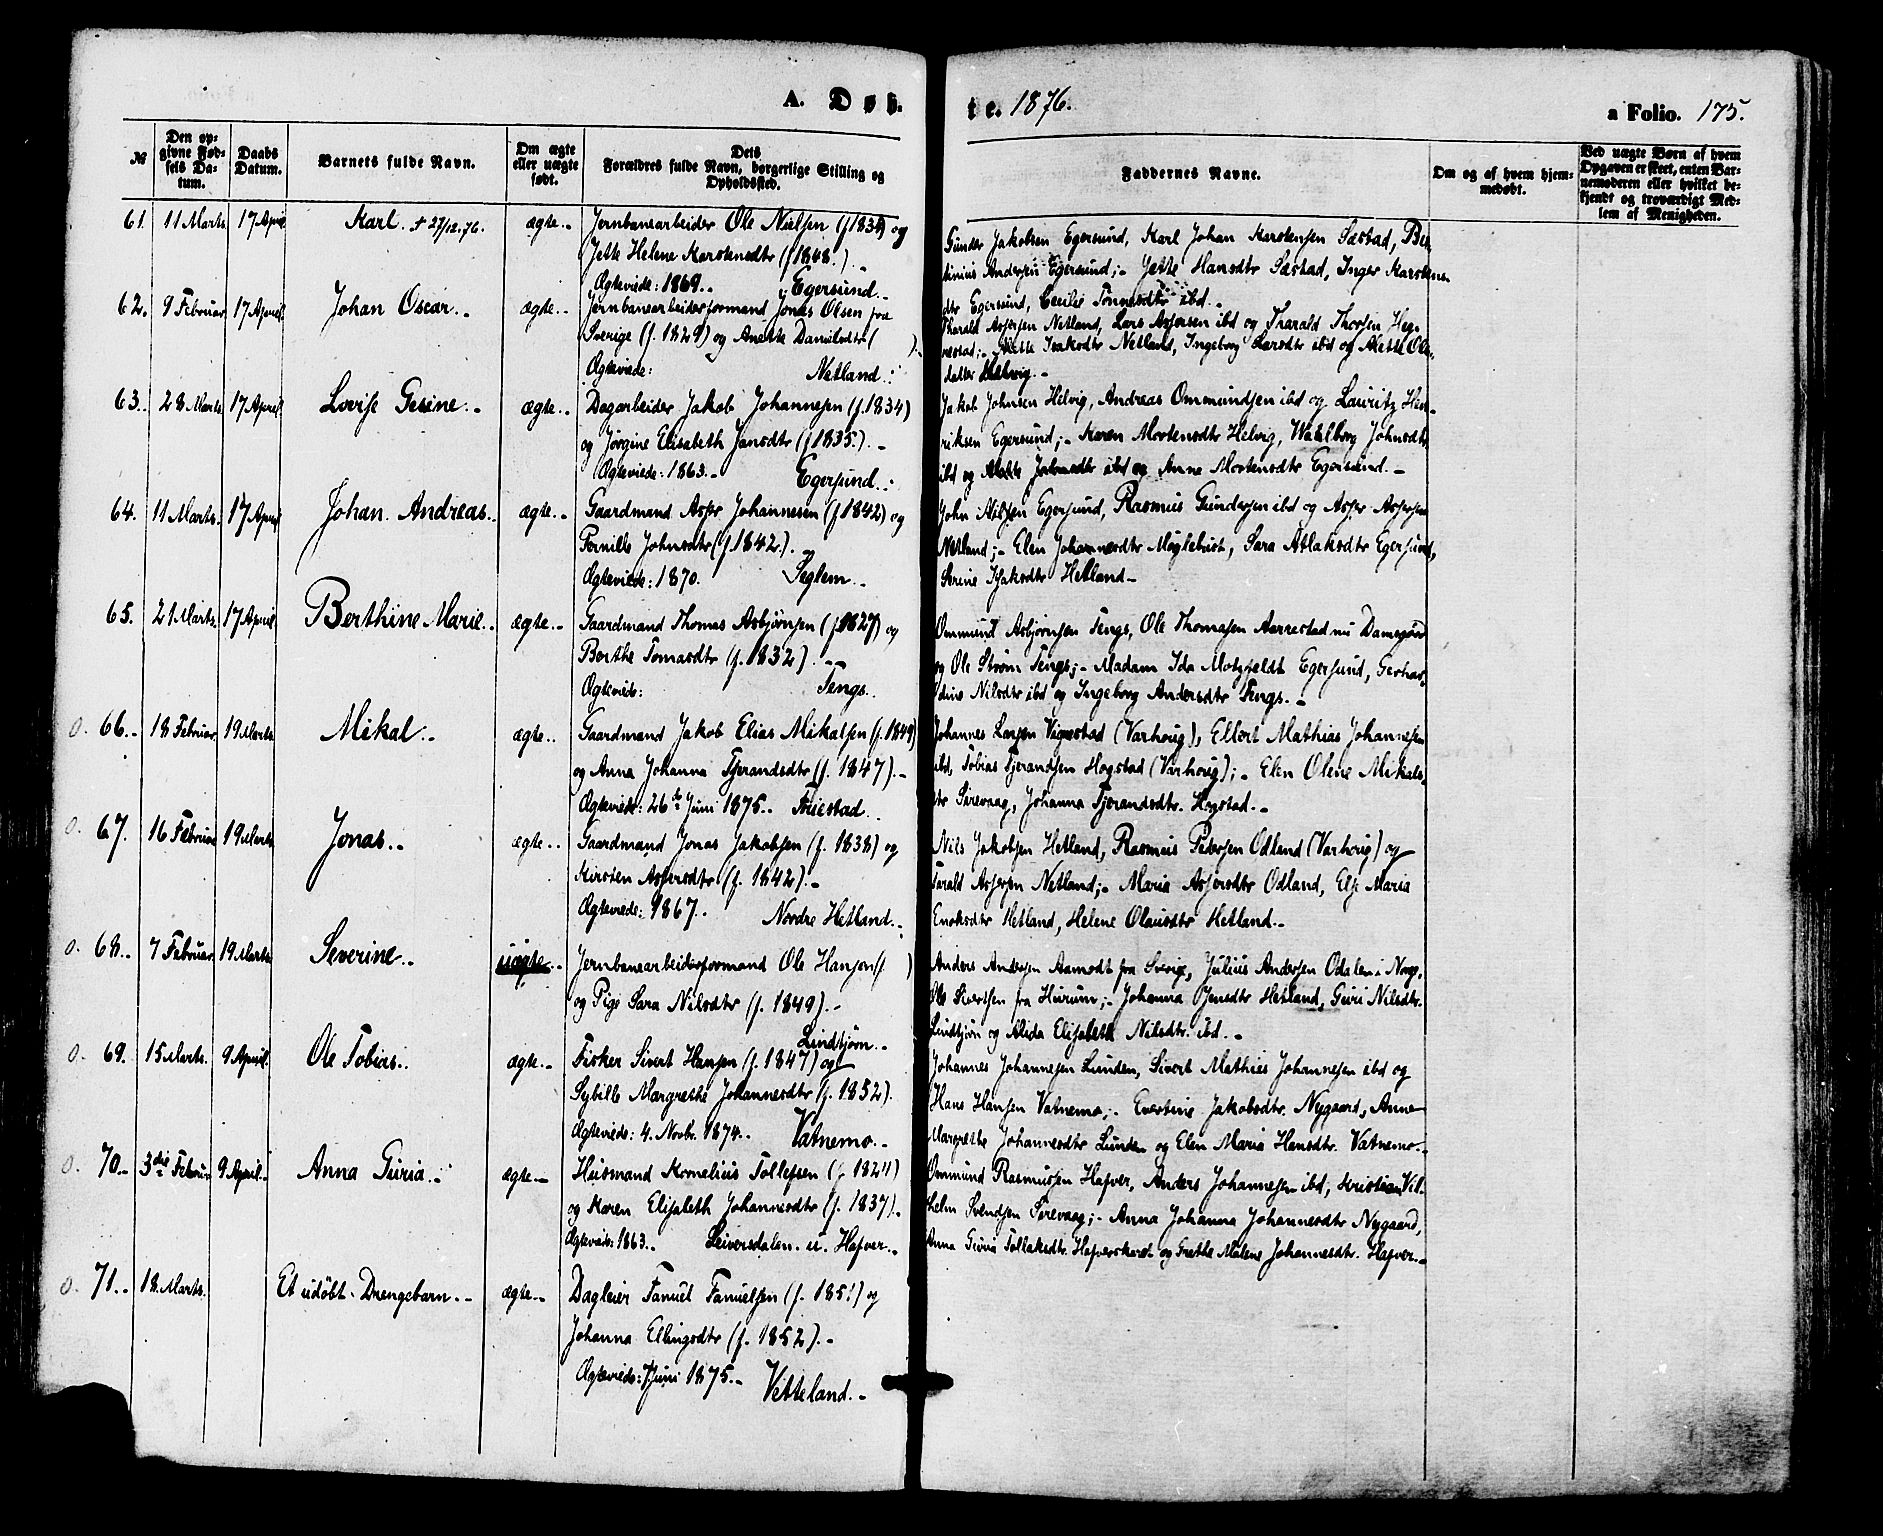 A. Døb-
te. 1876.
a Folio. 175.
№
Den op-
givne Fød-
sels Da-
tum.
Daabs
Datum.
Barnets fulde Navn.
Om ægte
eller uægte
født.
Dets
Forældres fulde Navn, borgerlige Stilling og
Opholdssted.
Faddernes Navne.
Om og af hvem hjem-
medøbt.
Ved uægte Børn af hvem
Opgaven er skeet, enten Bar-
nemoderen eller hvilket be-
kjendt og troværdigt Med-
lem af Menigheden.
61. 11 Marts. 17 April Karl. + 27/12.76. ægte.- Jernbanearbeider Ole Nielsen og
Jette Helene Karstensdtr (f 1848.).
Ægteviede: 1869.. Egersund.-
Gunder Jakobsen Egersund, Karl Johan Karstensen Sæstad, Ber-
tinius Andersen Egersund;- Jette Hansdtr Sæstad, Inger Karstens-
dtr Egersund, Cecilie Tønnesdtr ibd.-
62. 9 Februar 17 April Johan Oscar.. ægte.. Jernbanearbeiderformand Jonas Olsen fra
Sverige (f. 1829) og Anette Danielsdtr ( ).
Ægteviede: Netland.
Tharald Asgersen Netland, Lars Asgersen ibd og Tharald Thorsen Heg-
restad;- Isaksdtr Netland, Ingeborg Larsdtr ibd og Ole-
datter Helvig.-
63.. 28 Marts 17 April Lovise Gesine.. ægte.. Dagarbeider Jakob Johannesen (f. 1834)
og Jørgine Elisabeth Jansdtr (f 1835.).-
Ægteviede: 1863.- Egersund..
Jakob Johnsen Helvig, Andreas Ommundsen ibd og Lauritz Hen-
riksen Egersund;- Karen Mortensdtr Helvig, Walborg Johnsdtr
ibd og ibd og Anna Mortensdtr Egersund.-
64. 11 Marts. 17 April Johan Andreas.. ægte.- Gaardmand Asger Johannesen (f 1842) og
Pernille Johnsdtr (f. 1842.).
Ægteviede: 1870. Seglem.-
John Nilsen Egersund, Rasmus Gundersen ibd og Asger Asgersen
Netland;- Elen Johannesdtr Møglebust, Sara Atlaksdtr Egersund,
Serine Isaksdtr Hetland-
65. 21 Marts. 17 April. Berthine Marie.. ægte.- Gaardmand Thomas Asbjørnsen (f. 1827) og
Berthe Tomasdtr (f. 1832).-
Ægteviede: Tengs.
Ommund Asbjørnsen Tengs, Ole Thomasen Aarrestad nu Damsgård
og Ole Strøm Tengs;- Madam Ida Motzfeldt Egersund, Gerhar-
dine Nilsdtr ibd og Ingeborg Andersdtr Tengs.-
0. 66.- 18 Februar 19 Marts Mikal.. ægte.. Gaardmand Jakob Elias Mikalsen (f. 1849)
og Anna Johanna Tjerandsdtr (f. 1847).-
Ægteviede: 26de Juni 1875..
Johannes Larsen Vigrestad (Varhoug), Ellert Mathias Johannesen
ibd, Tobias Tjerandsen Hogstad (Varhoug);- Elen Olene Mikals-
dtr Sirevaag, Johanna Tjerandsdtr. Hogstad.-
0. 67. 16 Februar 19 Marts Jonas.. ægte.. Gaardmand Jonas Jakobsen (f. 1838) og
Kirsten Asgersdtr (f. 1842).-
Ægteviede: 1867.. Nordre Hetland.-
Nils Jakobsen Hetland, Rasmus Pedersen Odland (Varhoug) og
Tarald Asgersen Netland;- Maria Asgersdtr Odland, Else Maria
Enoksdtr Hetland, Helene Olausdtr Hetland.-
0. 68.. 7 Februar 19 Marts Severine.. uægte.. Jernbanearbeiderformand Ole Hansen (f. )
og Pige Sara Nilsdtr (f. 1849).-
Lindtjørn.-
Anders Andersen Aamodt fra Sverige, Julius Andersen Odalen i Norge,
Ole Sivertsen fra Hurum;- Johanna Jensdtr Hetland, Guri Nilsdtr.
Lindtjørn og Alida Elisabeth Nilsdtr. ibd.-
0. 69. 15 Marts. 9 April. Ole Tobias.. ægte.- Fisker Sivert Hansen (f. 1847) og
Sybille Margrethe Johannesdtr (f. 1852).
Ægteviede: 4. Novbr. 1874.. Vatnemo.-
Johannes Johannesen Lunden, Sivert Mathias Johannesen ibd og
Hans Hansen Vatnemo;- Evertine Jakobsdtr. Nygaard, Anne
Margrethe Johannesdtr Lunden og Elen Maria Hansdtr. Vatnemo.-
0. 70.- 3die Februar 9 April.- Anna Guria.. ægte.- Huusmand Kornelius Tollefsen
og Karen Elisabeth Johannesdtr (f. 1837).-
Ægteviede: 1863.. Seiversdalen. u. Hafver.-
Ommund Rasmussen Hafver, Anders Johannesen ibd, Kristian Vil-
helm Svendsen Sirevaag;- Anna Johanna Johannesdtr Nygaard,
Anna Guria Tollaksdtr. og Grethe Malene Johannesdtr. Hafver.-
0. 71.. 18. Marts. Et udøbt Drengebarn.- ægte.- Dagleier Fanuel Fanuelsen (f. 1851) og
Johanna Ellingsdtr (f. 1852).-
Ægteviede: 7 Juni 1875.- Vetteland.-